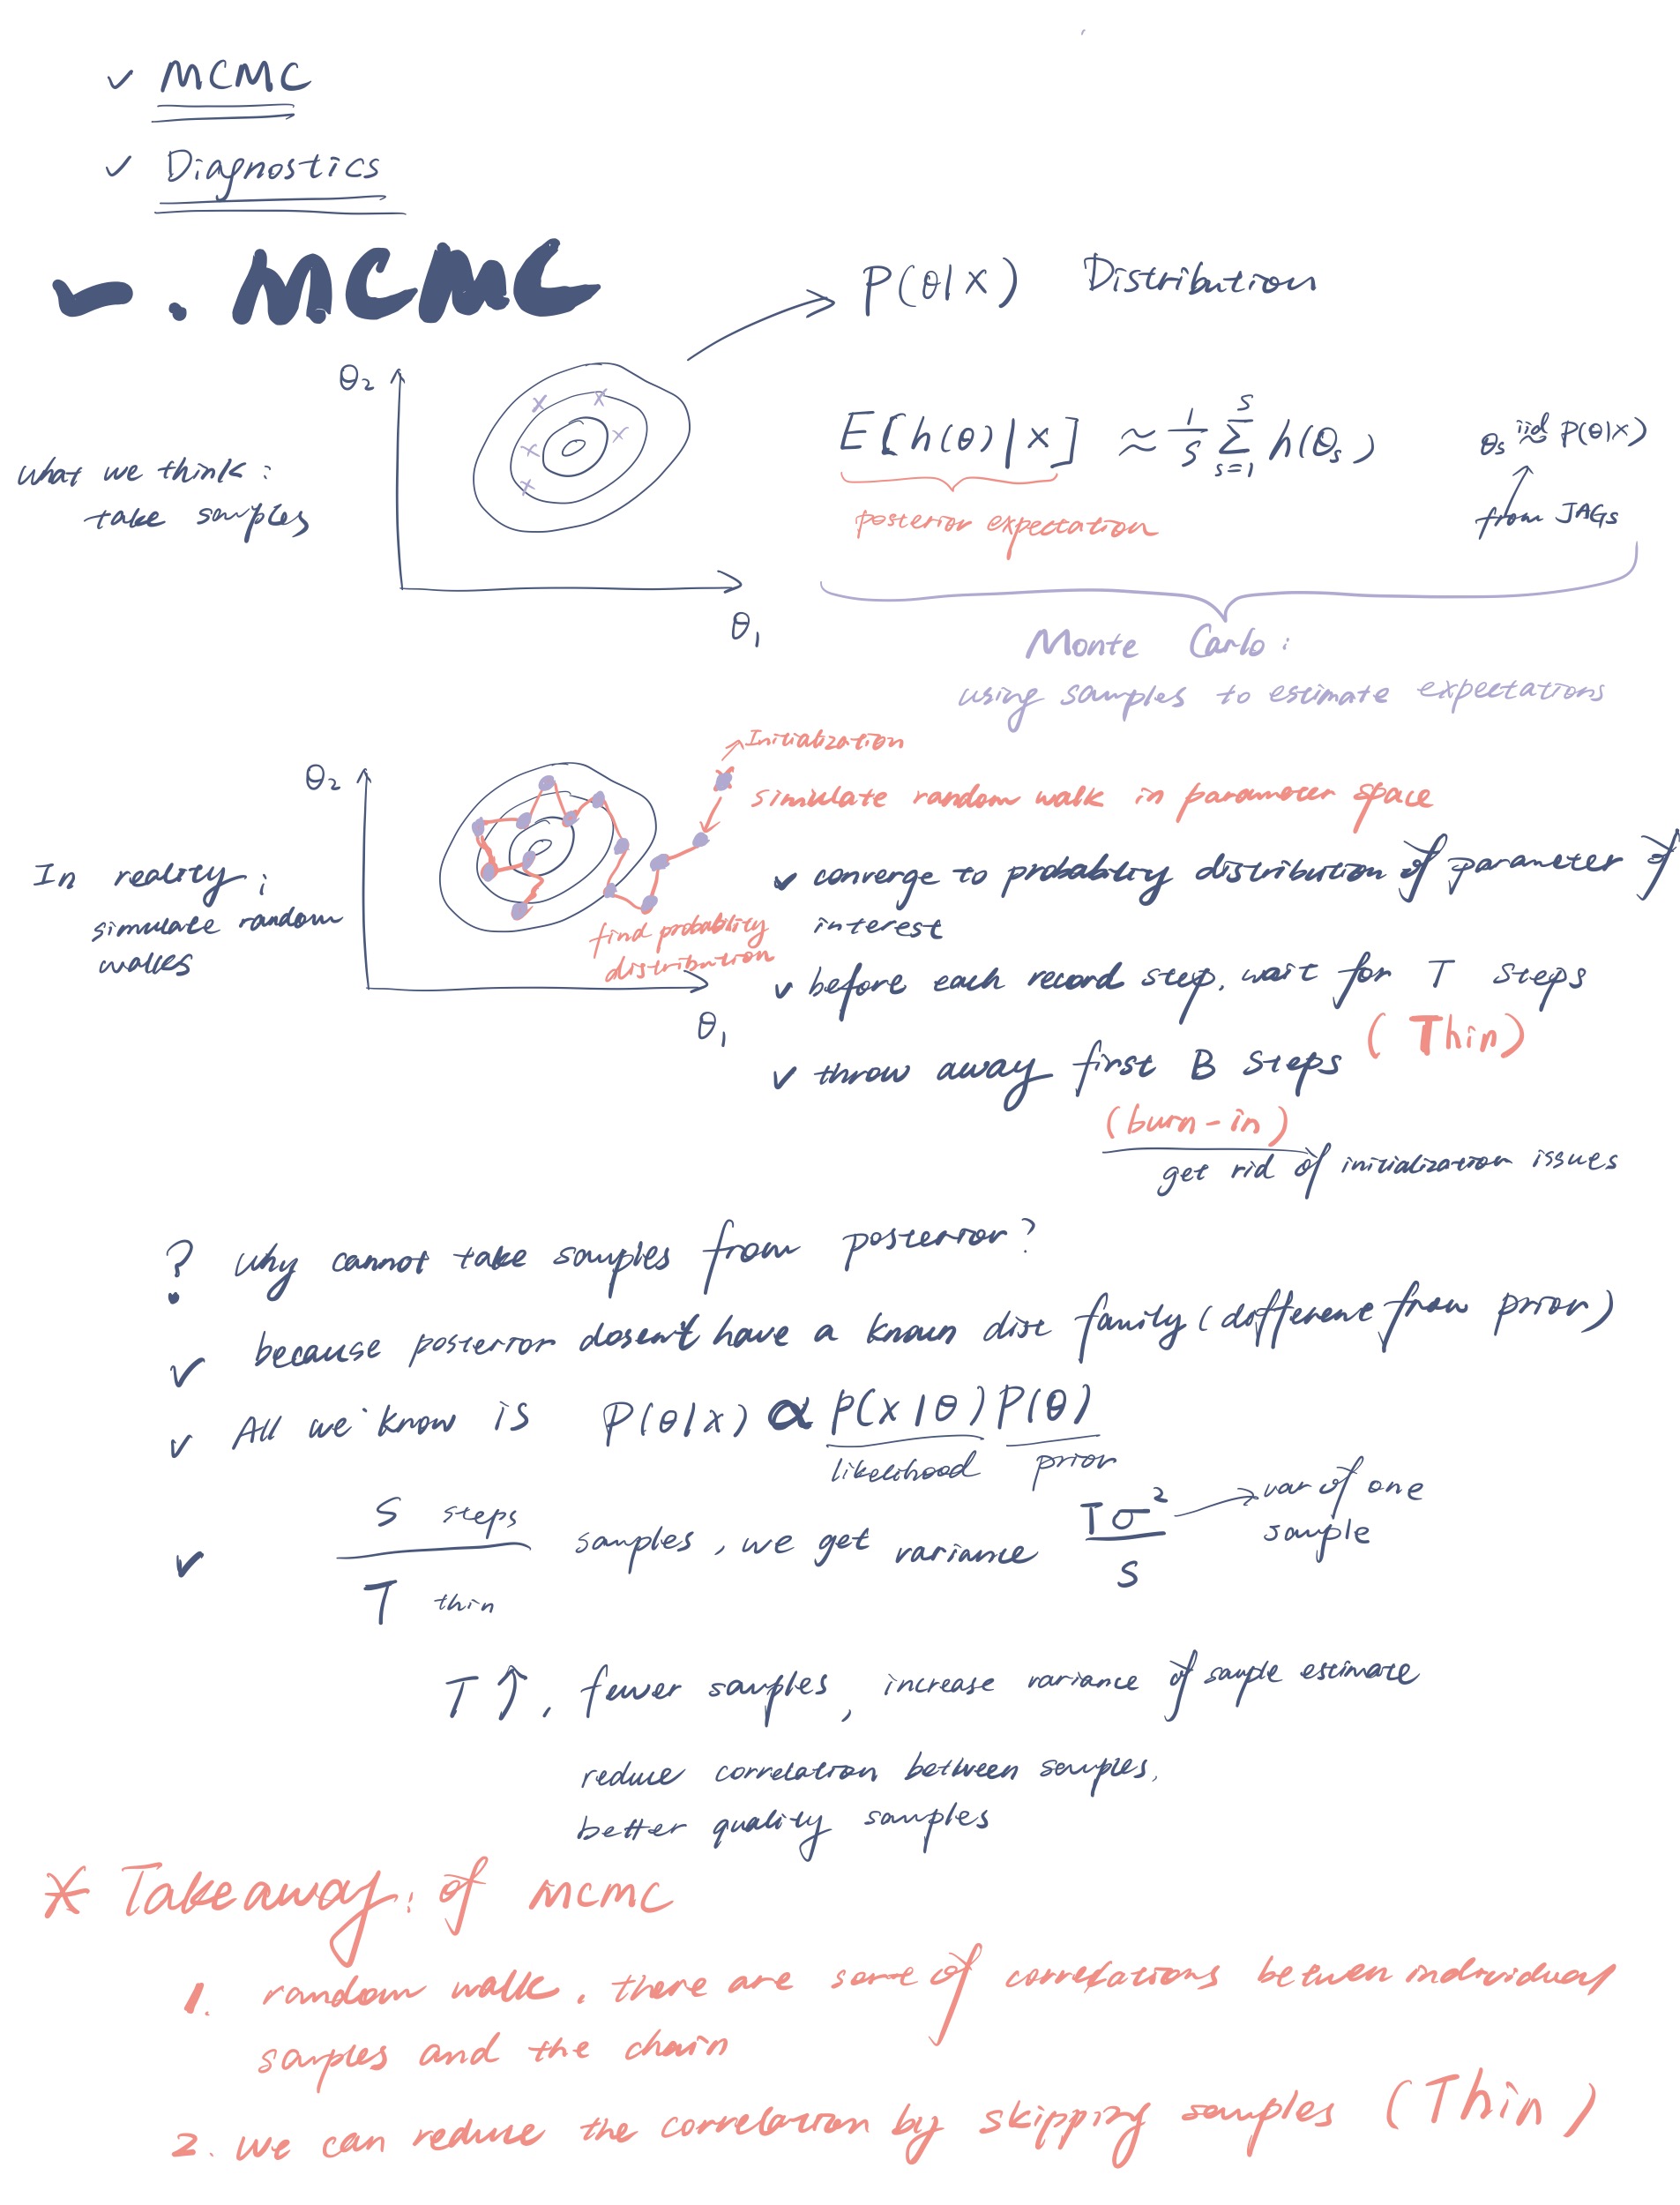 ✓ MCMC
✓ Diagnostics
✓. MCMC
P(θ|x) Distribution
θ₂
what we think:
take samples
E[h(θ)|x] ≈ 1/S Σ_{s=1}^{S} h(θₛ)
θₛ iid ~ P(θ|x)
posterior expectation
from JAGs
θ₁
Monte Carlo:
using samples to estimate expectations
Initialization
θ₂
simulate random walk in parameter space
In reality;
simulate random
walks
✓ converge to probability distribution of parameter of
interest
find probability
distribution
✓ before each record step, wait for T steps
(Thin)
θ₁
✓ throw away first B steps
(burn-in)
get rid of initialization issues
? why cannot take samples from posterior?
✓ because posterior dosen't have a known dist family (different from prior)
✓ All we know is P(θ|x) ∝ p(x|θ) P(θ)
likelihood prior
✓ S steps / T thin samples, we get variance Tσ² / S
var of one
sample
T↑, fewer samples, increase variance of sample estimate
reduce correlation between samples,
better quality samples
* Takeaway: of MCMC
1. random walk, there are sort of correlations between individual
samples and the chain
2. we can reduce the correlation by skipping samples (Thin)